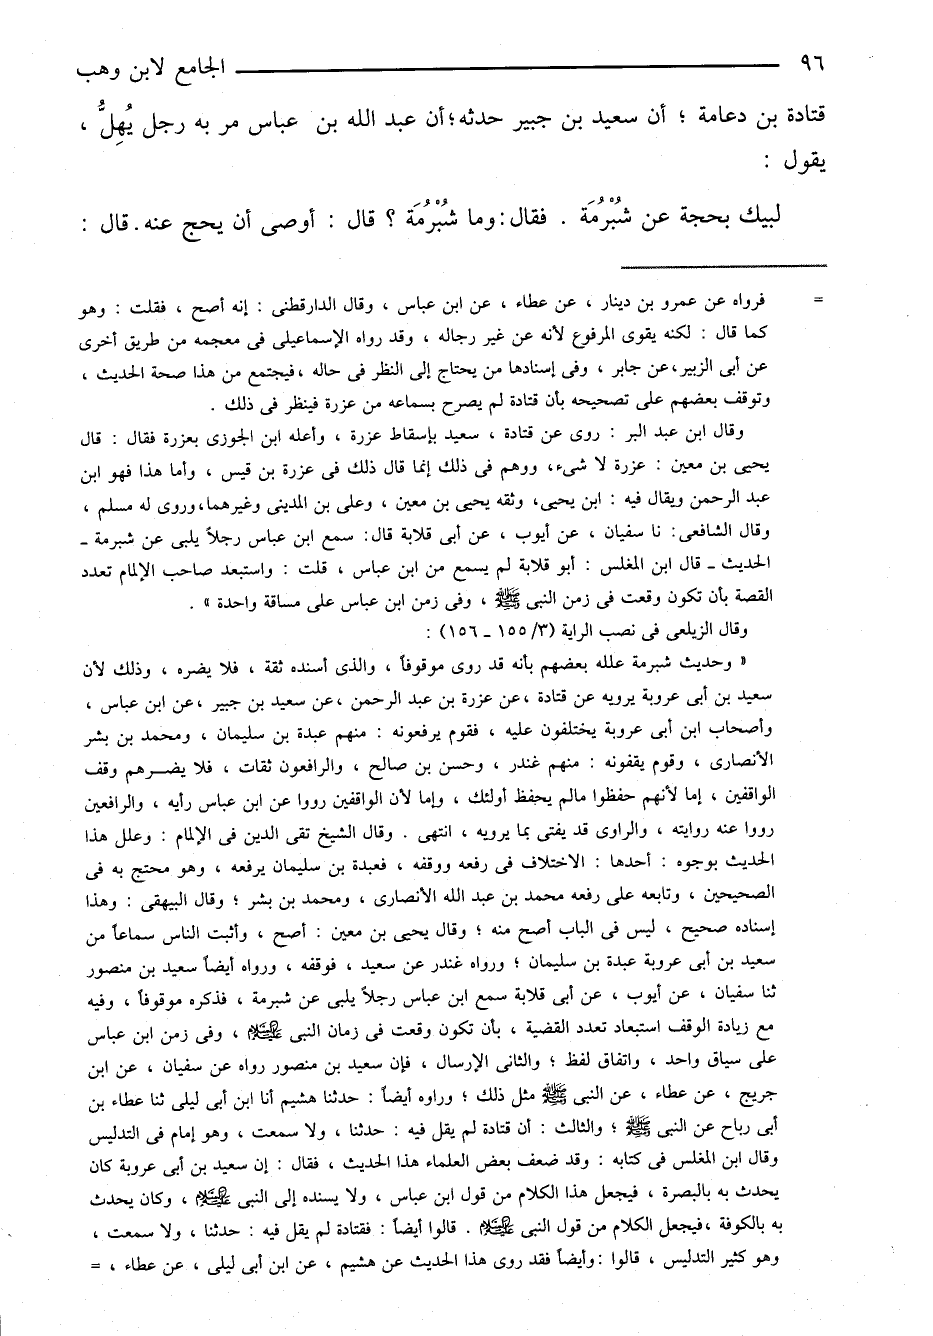 ٩٦ الجامع لابن وهب
قتادة بن دعامة ؛ أن سعيد بن جبير حدثه؛أن عبد الله بن عباس مر به رجل يُهِلُّ ،
يقول :
لبيك بحجة عن شُبْرُمَة . فقال:وما شُبْرُمَة ؟ قال : أوصى أن يحج عنه. قال :
= فرواه عن عمرو بن دينار ، عن عطاء ، عن ابن عباس ، وقال الدارقطنى : إنه أصح ، فقلت : وهو
كما قال : لكنه يقوى المرفوع لأنه عن غير رجاله ، وقد رواه الإسماعيلى فى معجمه من طريق أخرى
عن أبى الزبير،عن جابر ، وفى إسنادها من يحتاج إلى النظر فى حاله ،فيجتمع من هذا صحة الحديث ،
وتوقف بعضهم على تصحيحه بأن قتادة لم يصرح بسماعه من عزرة فينظر فى ذلك .
وقال ابن عبد البر : روى عن قتادة ، سعيد بإسقاط عزرة ، وأعله ابن الجوزى بعزرة فقال : قال
يحيى بن معين : عزرة لا شىء، ووهم فى ذلك إنما قال ذلك فى عزرة بن قيس ، وأما هذا فهو ابن
عبد الرحمن ويقال فيه : ابن يحيى، وثقه يحيى بن معين ، وعلى بن المدينى وغيرهما،وروى له مسلم ،
وقال الشافعى: نا سفيان ، عن أيوب ، عن أبى قلابة قال: سمع ابن عباس رجلاً يلبى عن شبرمة ـ
الحديث ـ قال ابن المغلس : أبو قلابة لم يسمع من ابن عباس ، قلت : واستبعد صاحب الإلمام تعدد
القصة بأن تكون وقعت فى زمن النبى ﷺ ، وفى زمن ابن عباس على مساقة واحدة » .
وقال الزيلعى فى نصب الراية (٣/ ١٥٥ ـ ١٥٦) :
« وحديث شبرمة علله بعضهم بأنه قد روى موقوفاً ، والذى أسنده ثقة ، فلا يضره ، وذلك لأن
سعيد بن أبى عروبة يرويه عن قتادة ،عن عزرة بن عبد الرحمن ،عن سعيد بن جبير ،عن ابن عباس ،
وأصحاب ابن أبى عروبة يختلفون عليه ، فقوم يرفعونه : منهم عبدة بن سليمان ، ومحمد بن بشر
الأنصارى ، وقوم يقفونه : منهم غندر ، وحسن بن صالح ، والرافعون ثقات ، فلا يضـرهم وقف
الواقفين ، إما لأنهم حفظوا مالم يحفظ أولئك ، وإما لأن الواقفين رووا عن ابن عباس رأيه ، والرافعين
رووا عنه روايته ، والراوى قد يفتى بما يرويه ، انتهى . وقال الشيخ تقى الدين فى الإلمام : وعلل هذا
الحديث بوجوه : أحدها : الاختلاف فى رفعه ووقفه ، فعبدة بن سليمان يرفعه ، وهو محتج به فى
الصحيحين ، وتابعه على رفعه محمد بن عبد الله الأنصارى ، ومحمد بن بشر ؛ وقال البيهقى : وهذا
إسناده صحيح ، ليس فى الباب أصح منه ؛ وقال يحيى بن معين : أصح ، وأثبت الناس سماعاً من
سعيد بن أبى عروبة عبدة بن سليمان ؛ ورواه غندر عن سعيد ، فوقفه ، ورواه أيضاً سعيد بن منصور
ثنا سفيان ، عن أيوب ، عن أبى قلابة سمع ابن عباس رجلاً يلبى عن شبرمة ، فذكره موقوفاً ، وفيه
مع زيادة الوقف استبعاد تعدد القضية ، بأن تكون وقعت فى زمان النبى ﷺ ، وفى زمن ابن عباس
على سياق واحد ، واتفاق لفظ ؛ والثانى الإرسال ، فإن سعيد بن منصور رواه عن سفيان ، عن ابن
جريج ، عن عطاء ، عن النبى ﷺ مثل ذلك ؛ وراوه أيضاً : حدثنا هشيم أنا ابن أبى ليلى ثنا عطاء بن
أبى رباح عن النبى ﷺ ؛ والثالث : أن قتادة لم يقل فيه : حدثنا ، ولا سمعت ، وهو إمام فى التدليس
وقال ابن المغلس فى كتابه : وقد ضعف بعض العلماء هذا الحديث ، فقال : إن سعيد بن أبى عروبة كان
يحدث به بالبصرة ، فيجعل هذا الكلام من قول ابن عباس ، ولا يسنده إلى النبى ﷺ ، وكان يحدث
به بالكوفة ،فيجعل الكلام من قول النبى ﷺ . قالوا أيضاً : فقتادة لم يقل فيه : حدثنا ، ولا سمعت ،
وهو كثير التدليس ، قالوا :وأيضاً فقد روى هذا الحديث عن هشيم ، عن ابن أبى ليلى ، عن عطاء ، =